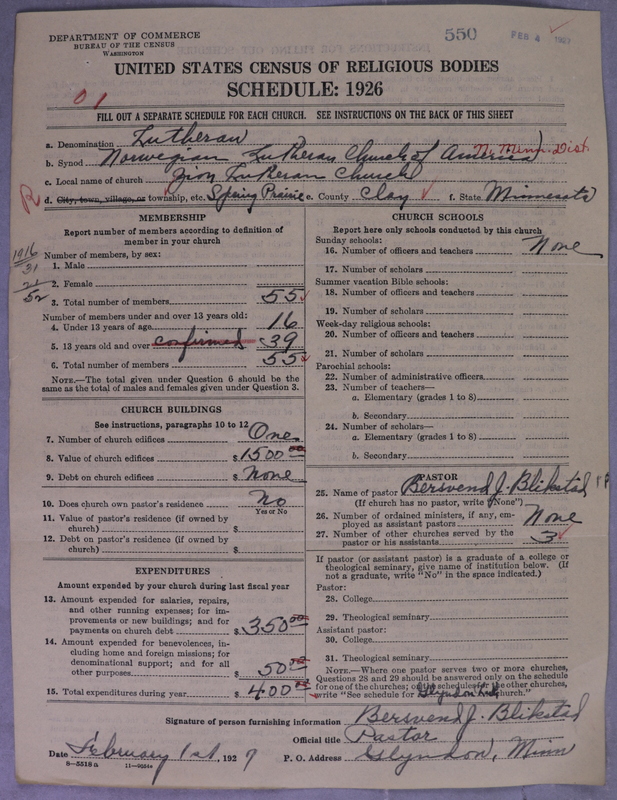 DEPARTMENT OF COMMERCE
BUREAU OF THE CENSUS
WASHINGTON
550
FEB 4 1927
UNITED STATES CENSUS OF RELIGIOUS BODIES
SCHEDULE: 1926
01
FILL OUT A SEPARATE SCHEDULE FOR EACH CHURCH. SEE INSTRUCTIONS ON THE BACK OF THIS SHEET
a. Denomination Lutheran
b. Synod Norwegian Lutheran Church of America N. Minn. Dist.
c. Local name of church Zion Lutheran Church
R
d. City, town, village, or township, etc. Spring Prairie e. County Clay f. State Minnesota
MEMBERSHIP
Report number of members according to definition of
member in your church
1916
31
21
52
Number of members, by sex:
1. Male
2. Female
3. Total number of members 55
Number of members under and over 13 years old:
4. Under 13 years of age 16
5. 13 years old and over confirmed 39
6. Total number of members 55
NOTE.—The total given under Question 6 should be
same as the total of males and females given under Question 3.
CHURCH BUILDINGS
See instructions, paragraphs 10 to 12
7. Number of church edifices One
8. Value of church edifices $1500 00
9. Debt on church edifices $ None
10. Does church own pastor's residence No
Yes or No
11. Value of pastor's residence (if owned by
church) $
12. Debt on pastor's residence (if owned by
church) $
EXPENDITURES
Amount expended by your church during last fiscal year
13. Amount expended for salaries, repairs,
and other running expenses; for im-
provements or new buildings; and for
payments on church debt $ 350 00
14. Amount expended for benevolences, in-
cluding home and foreign missions; for
denominational support; and for all
other purposes $ 50 00
15. Total expenditures during year $ 400 00
CHURCH SCHOOLS
Report here only schools conducted by this church
Sunday schools:
16. Number of officers and teachers None
17. Number of scholars
Summer vacation Bible schools:
18. Number of officers and teachers
19. Number of scholars
Week-day religious schools:
20. Number of officers and teachers
21. Number of scholars
Parochial schools:
22. Number of administrative officers
23. Number of teachers—
a. Elementary (grades 1 to 8)
b. Secondary
24. Number of scholars—
a. Elementary (grades 1 to 8)
b. Secondary
PASTOR
25. Name of pastor Bersvend J. Blikstad
(If church has no pastor, write "None")
26. Number of ordained ministers, if any, em-
ployed as assistant pastors None
27. Number of other churches served by the
pastor or his assistants 3
If pastor (or assistant pastor) is a graduate of a college or
theological seminary, give name of institution below. (If
not a graduate, write "No" in the space indicated.)
Pastor:
28. College
29. Theological seminary
Assistant pastor:
30. College
31. Theological seminary
NOTE.—Where one pastor serves two or more churches,
Questions 28 and 29 should be answered only on the schedule
for one of the churches; on the schedules for the other churches,
write "See schedule for Glyndon Luth. church."
Signature of person furnishing information Bersvend J. Blikstad
Official title Pastor
Date February 1st, 1927 P. O. Address Glyndon, Minn
8—5518a 11—9534a